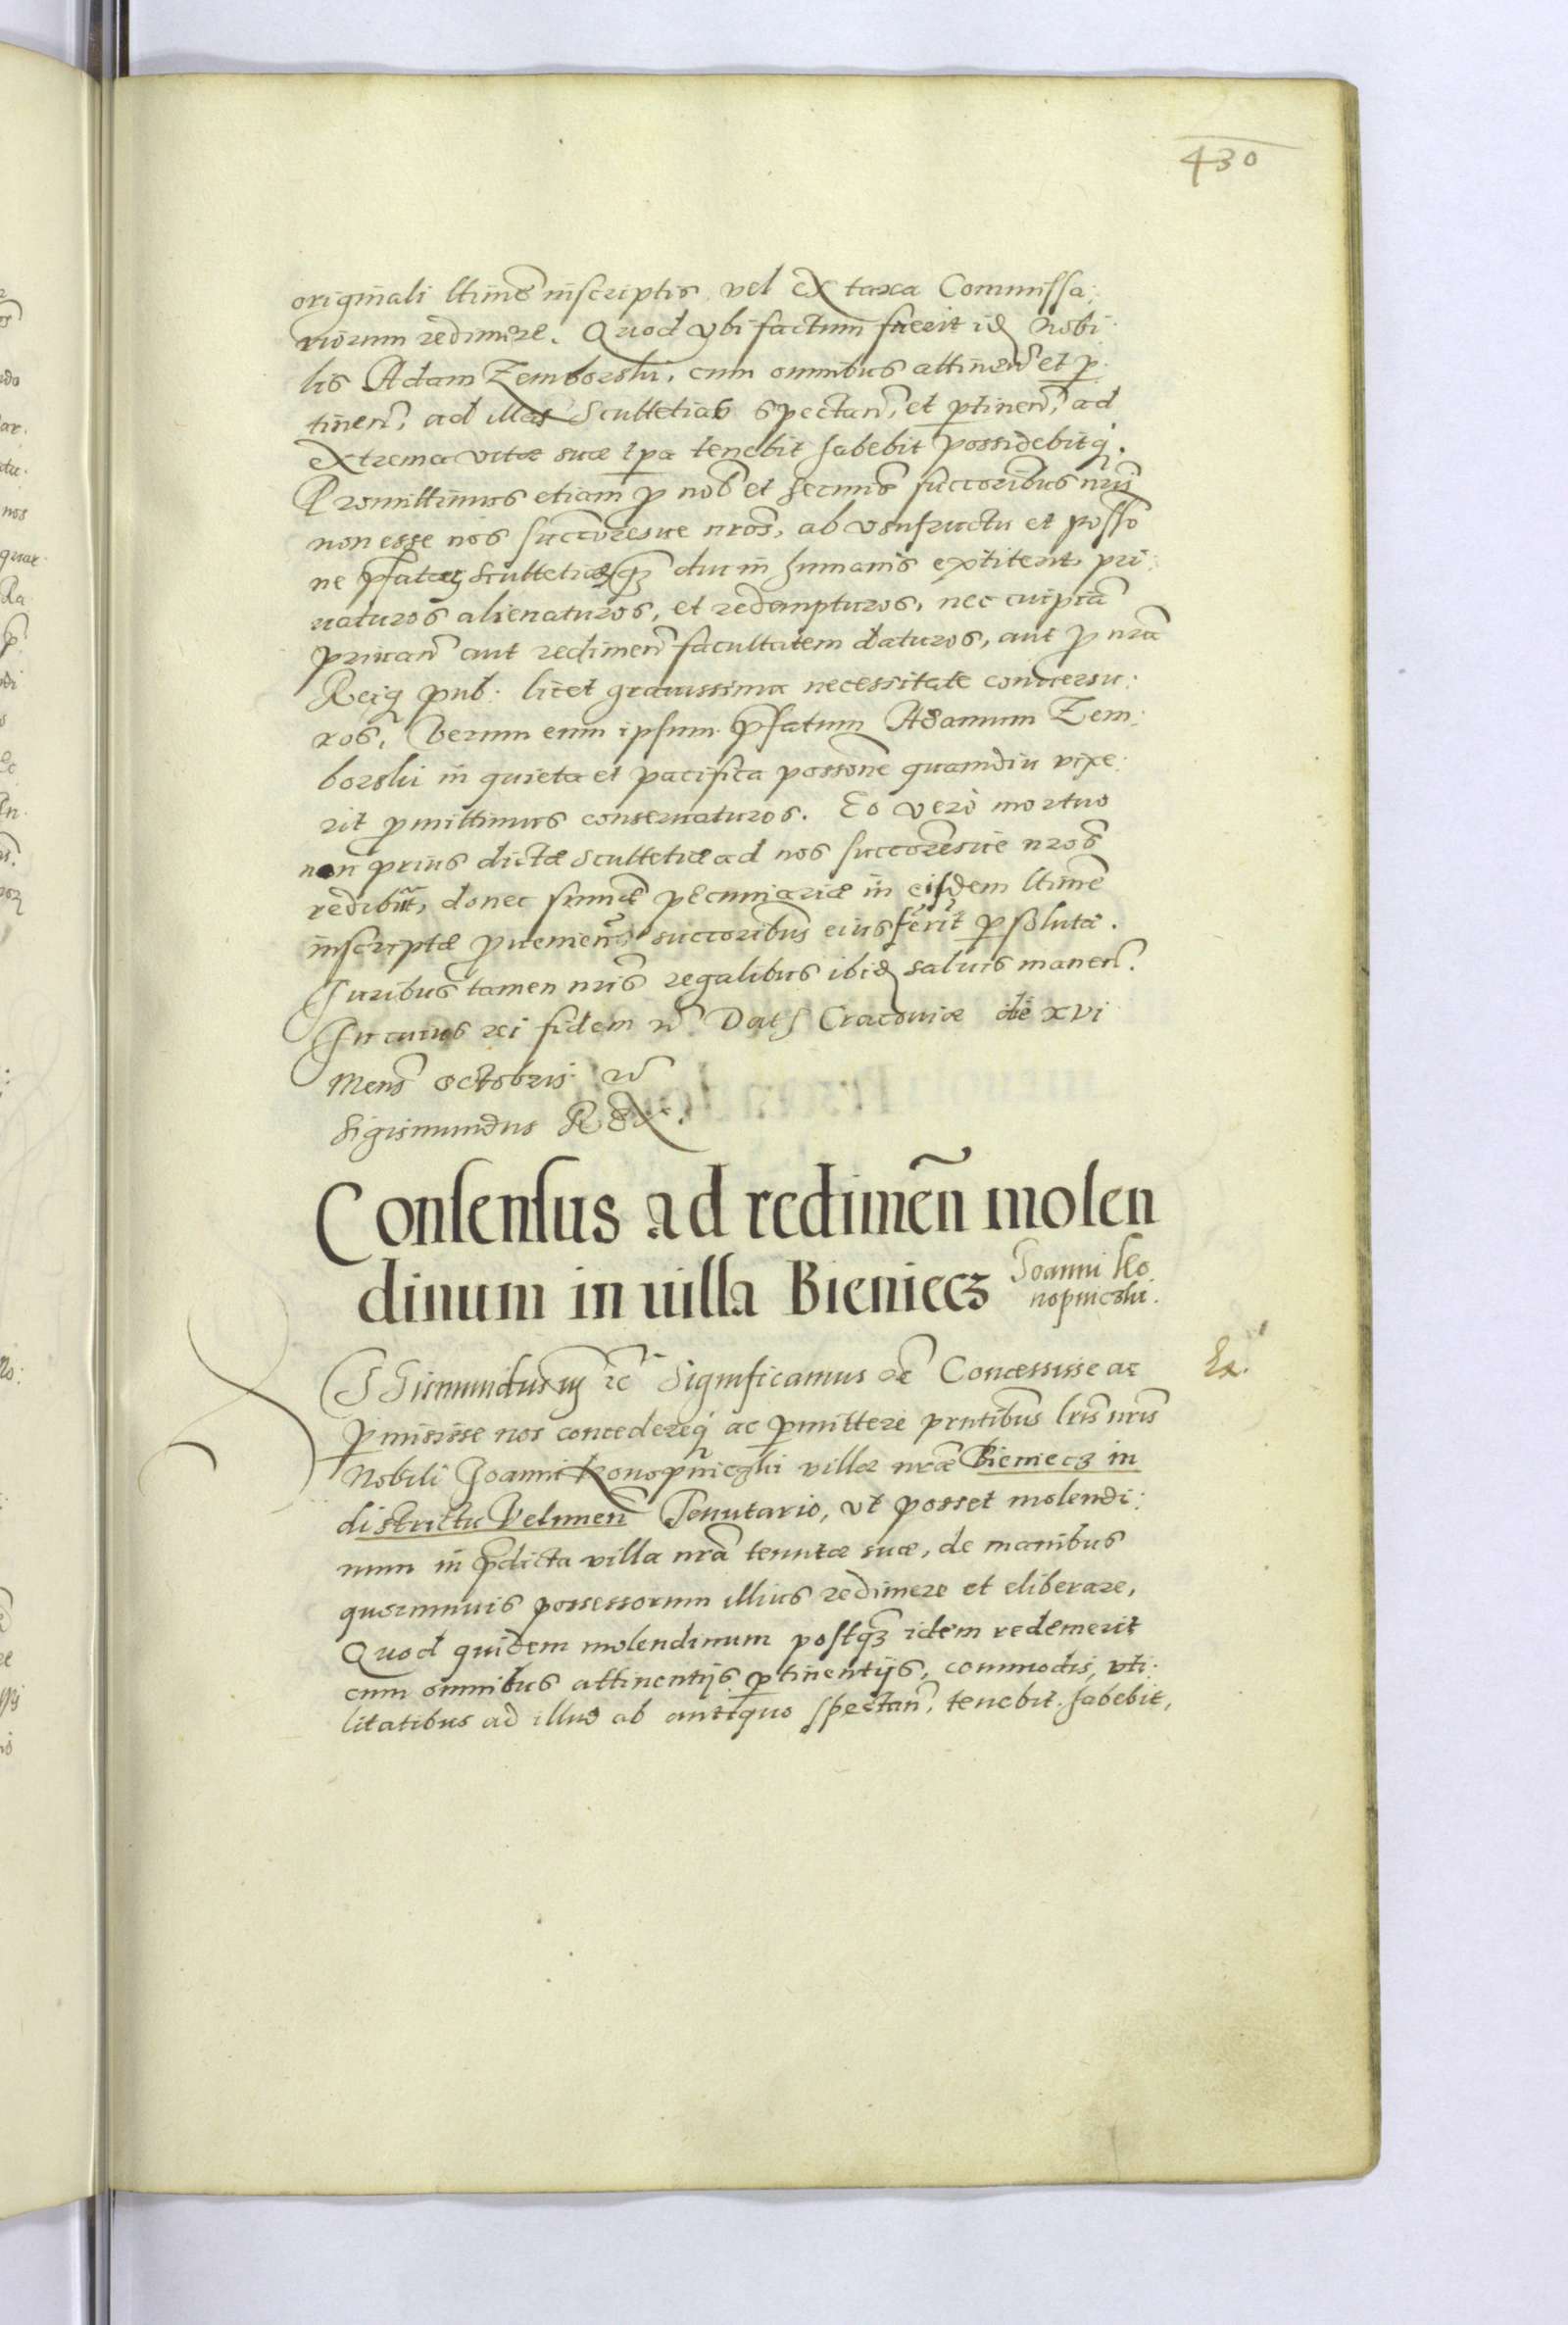 430
originali ltimẽ inscriptis, vel ex taxa Commissa:
riorum redimere. Quod vbi factum fuerit idẽ Nobi
lis Adam Zemborski, cum omnibus attineñ et p
tineñ, ad illas Scultetias spectañ, et ptineñ, ad
extrema vitæ suæ tpa tenebit habebit possidebitq.
Promittimus etiam p nob et Sermis succoribus nris
non esse nos succoresue nros, ab vsufructu et posso
ne pfatæ Scultetiæ, dum in humanis extiterit, pri:
uaturos alienaturos, et redempturos, nec cuipiã
priuañ aut redimeñ facultatem daturos, aut p nrã
Reiq pub: licet grauissima necessitate conuersu:
ros, Verum eum ipsum pfatum Adamum Zem:
borski in quieta et pacifica possone quamdiu vixe:
rit pmittimus conseruaturos. Eo vero mortuo
non prius dictæ Scultetiæ ad nos succoresue nros
redibũt, donec summæ pecuniariæ in eisdem ltimẽ
inscriptæ pueniend successoribus eius ferit psolutæ.
Iuribus tamen nris regalibus ibidẽ saluis maneñ.
In cuius rei fidem rc Dat Cracouiæ die xvi
Mens octobris rc
Sigismundus Rex.
Consensus ad redimeñ molen
dinum in uilla Bieniecz Joanni Ko
nopniczki.
Ex.
SIGismundus iij rc Significamus rc Concessisse ac
pmisisse nos concedereq ac pmittere pntibus lris nris
Nobili Joanni Konopniczki villæ nræ Bieniecz in
districtu Veluneñ Tenutario, vt posset molendi:
num in pdicta villa nrã tenutæ suæ, de manibus
quorumuis possessorum illius redimere et eliberare,
Quod quidem molendinum postq idem redemerit
cum omnibus attinentijs ptinentijs, commodis, vti:
litatibus ad illud ab antiquo spectañ, tenebit habebit,